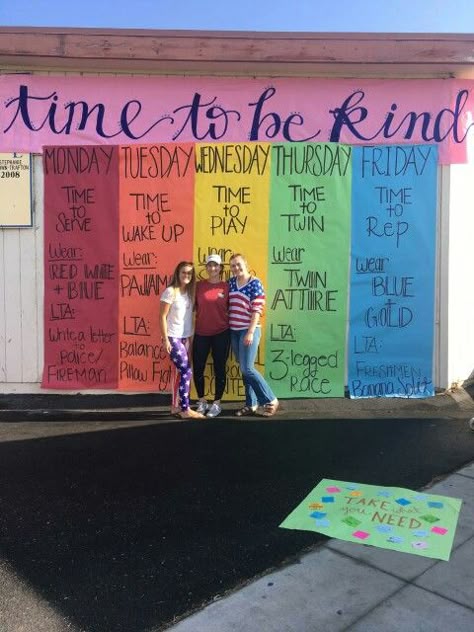 time to be kind
STEPHANIE
2008
MONDAY
TIME
to
SERVE
Wear:
RED WHITE
+ BLUE
LTA:
Write a letter
to
POLICE/
FIREMAN
TUESDAY
TIME
to
WAKE UP
Wear:
PAJAMA
LTA:
Balance
Pillow Fight
WEDNESDAY
TIME
to
PLAY
Wear
THURSDAY
TIME
to
TWIN
Wear
TWIN
ATTIRE
LTA:
3-legged
Race
FRIDAY
TIME
to
Rep
Wear
BLUE
&
GOLD
LTA:
FRESHMEN
Banana Split
TAKE what
you NEED